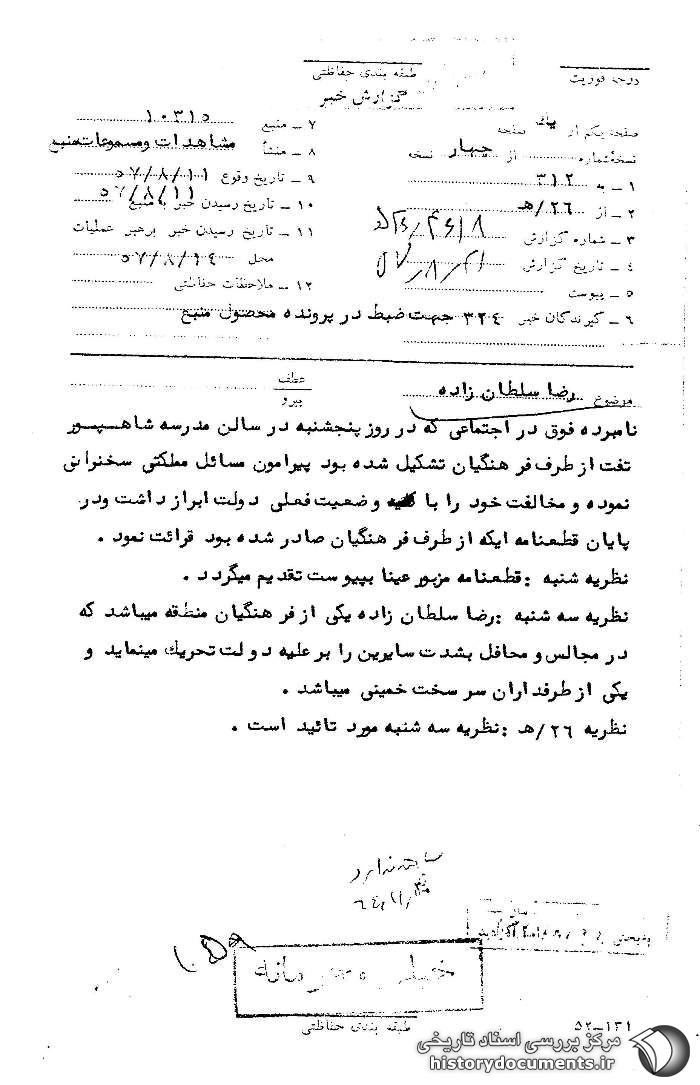 درجه فوریت
طبقه بندی حفاظتی
گزارش خبر
صفحه یکم از یک صفحه
نسخه شماره از چهار نسخه
۱ ــ به ۳۱۲
۲ ــ از ۲۶/هـ
۳ ــ شماره گزارش
۴ ــ تاریخ گزارش
۵ ــ پیوست
۶ ــ گیرندگان خبر ۳۲٤ جهت ضبط در پرونده محصول منبع
۷ ــ منبع ۱۰۳۱۵
۸ ــ منشأ مشاهدات ومسموعات منبع
۹ ــ تاریخ وقوع ۵۷/۸/۱۱
۱۰ ــ تاریخ رسیدن خبر به منبع ۵۷/۸/۱۱
۱۱ ــ تاریخ رسیدن خبر برهبر عملیات
محل ۵۷/۸/۱٤
۱۲ ــ ملاحظات حفاظتی
موضوع رضا سلطان زاده
عطف
پیرو
نامبرده فوق در اجتماعی که در روز پنجشنبه در سالن مدرسه شاهپور
تفت از طرف فرهنگیان تشکیل شده بود پیرامون مسائل مملکتی سخنرانی
نموده و مخالفت خود را با کلیه وضعیت فعلی دولت ابراز داشت ودر
پایان قطعنامه ایکه از طرف فرهنگیان صادر شده بود قرائت نمود .
نظریه شنبه : قطعنامه مزبور عینا بپیوست تقدیم میگردد .
نظریه سه شنبه : رضا سلطان زاده یکی از فرهنگیان منطقه میباشد که
در مجالس و محافل بشدت سایرین را بر علیه دولت تحریک مینماید و
یکی از طرفداران سر سخت خمینی میباشد .
نظریه ۲۶/هـ : نظریه سه شنبه مورد تائید است .
سابقه ندارد
خیلی محرمانه
طبقه بندی حفاظتی
۵۲-۱۳۱
مرکز بررسی اسناد تاریخی
historydocuments.ir